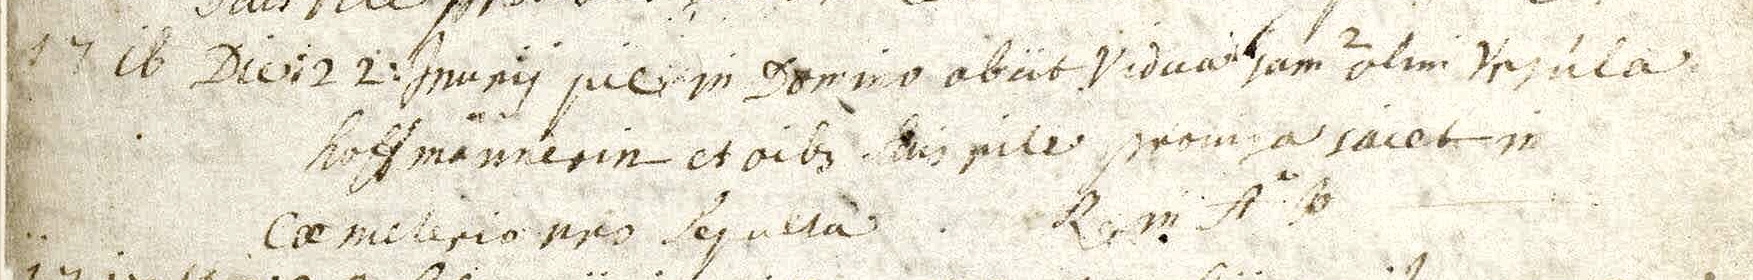 17 16 Die 22: Januarij pie in Domino obiit Vidua jam olim Ursula
hoffmännerin et oibs suis rite provisa iacet in
Cœmeterio nro sepulta R. in